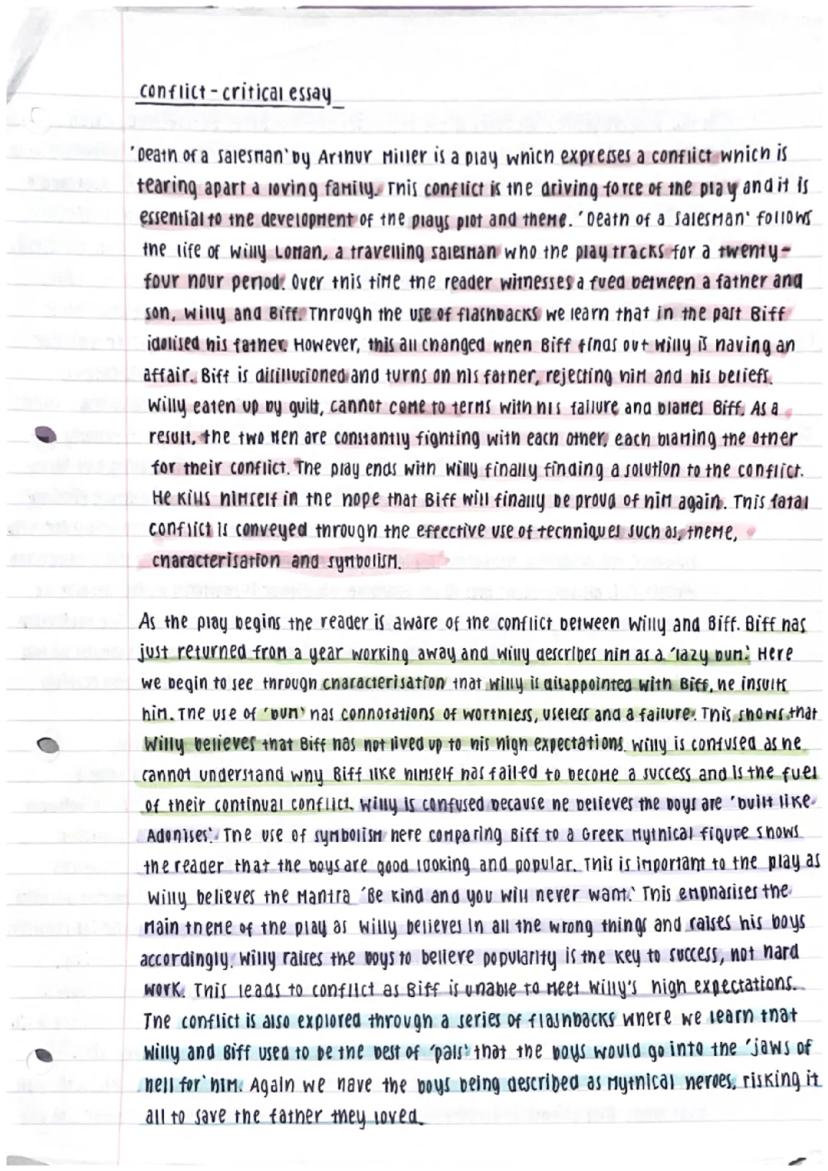 conflict - critical essay
'Death of a Salesman' by Arthur Miller is a play which expresses a conflict which is
tearing apart a loving family. This conflict is the driving force of the play and it is
essential to the development of the plays plot and theme. 'Death of a Salesman' follows
the life of Willy Loman, a travelling salesman who the play tracks for a twenty-
four hour period. Over this time the reader witnesses a fued between a father and
son, Willy and Biff. Through the use of flashbacks we learn that in the past Biff
idolised his father. However, this all changed when Biff finds out Willy is having an
affair. Biff is disillusioned and turns on his father, rejecting him and his beliefs.
Willy eaten up by guilt, cannot come to terms with his failure and blames Biff. As a
result, the two men are constantly fighting with each other, each blaming the other
for their conflict. The play ends with Willy finally finding a solution to the conflict.
He kills himself in the hope that Biff will finally be proud of him again. This fatal
conflict is conveyed through the effective use of techniques such as, theme,
characterisation and symbolism.
As the play begins the reader is aware of the conflict between Willy and Biff. Biff has
just returned from a year working away and Willy describes him as a 'lazy bum.' Here
we begin to see through characterisation that Willy is disappointed with Biff, he insults
him. The use of 'bum' has connotations of worthless, useless and a failure. This shows that
Willy believes that Biff has not lived up to his high expectations. Willy is confused as he
cannot understand why Biff like himself has failed to become a success and is the fuel
of their continual conflict. Willy is confused because he believes the boys are 'built like
Adonises'. The use of symbolism here comparing Biff to a Greek Mythical figure shows
the reader that the boys are good looking and popular. This is important to the play as
Willy believes the mantra 'Be kind and you will never want.' This emphasises the
main theme of the play as Willy believes in all the wrong things and raises his boys
accordingly. Willy raises the boys to believe popularity is the key to success, not hard
work. This leads to conflict as Biff is unable to meet Willy's high expectations.
The conflict is also explored through a series of flashbacks where we learn that
Willy and Biff used to be the best of 'pals' that the boys would go into the 'jaws of
hell for' him. Again we have the boys being described as mythical heroes, risking it
all to save the father they loved.